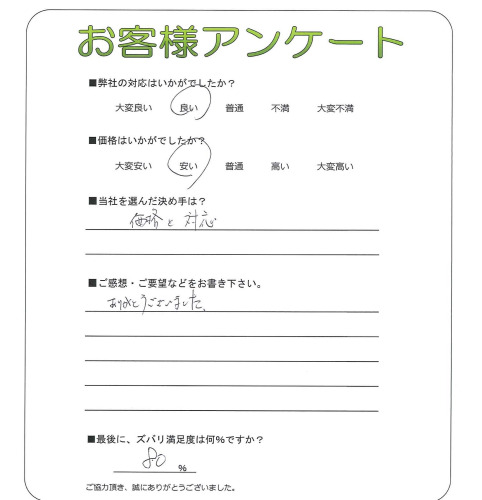 お客様アンケート
■弊社の対応はいかがでしたか？
大変良い 良い 普通 不満 大変不満
■価格はいかがでしたか？
大変安い 安い 普通 高い 大変高い
■当社を選んだ決め手は？
価格と対応
■ご感想・ご要望などをお書き下さい。
ありがとうございました。
■最後に、ズバリ満足度は何%ですか？
80 %
ご協力頂き、誠にありがとうございました。